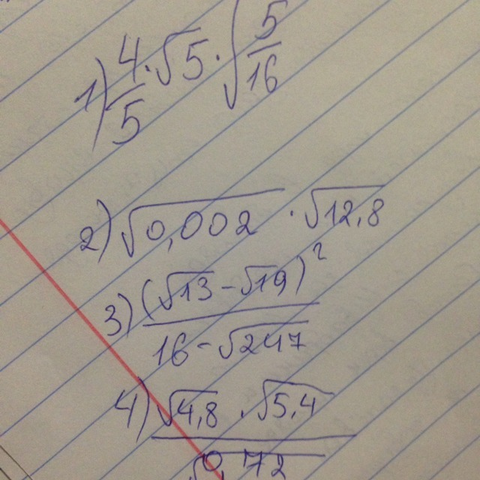 1) 4/5 · √5 · √5/16
2) √0,002 · √12,8
3) (√13 - √19)²
16 - √247
4) √4,8 · √5,4
√0,72